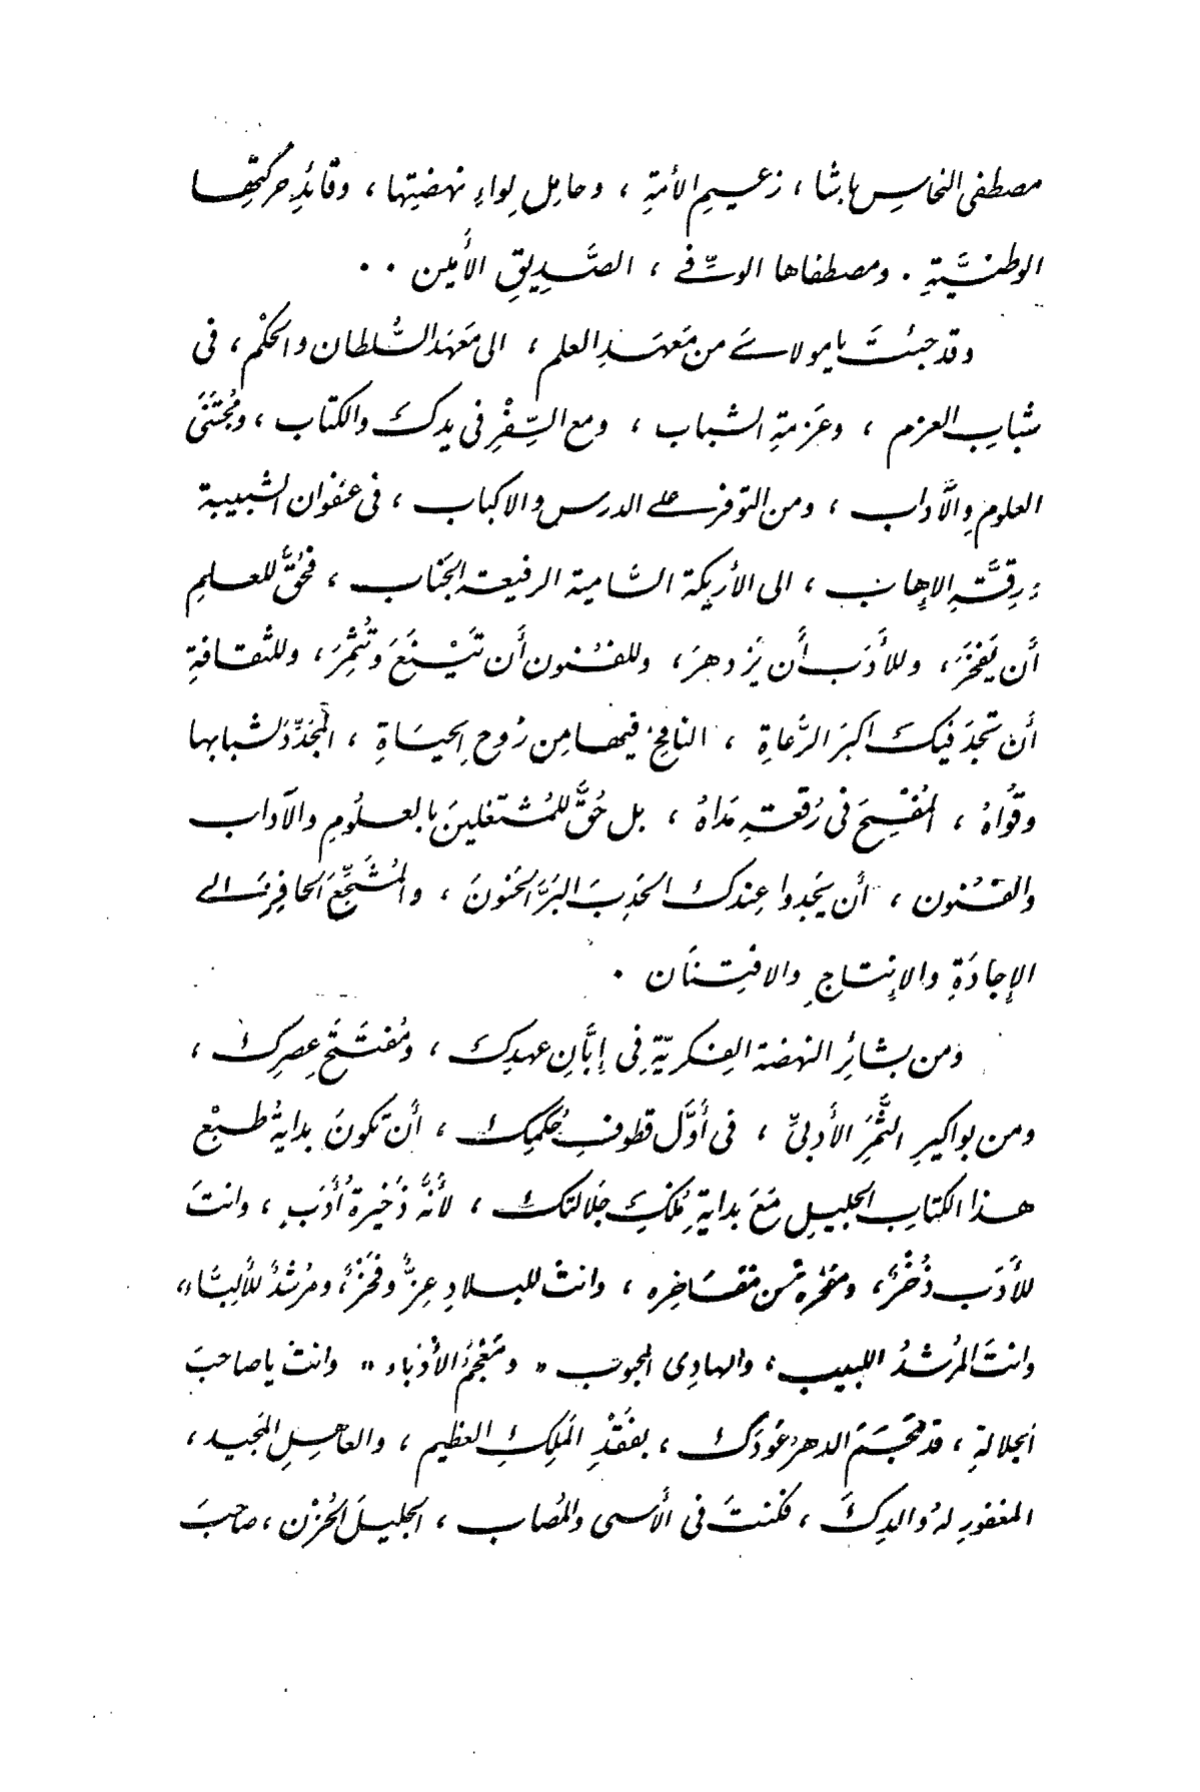 مصطفى النحاسِ باشا ، زعيمِ الأمةِ ، وحامِل لِواءِ نهضتِها ، وقائدِ حركتِها
الوطنيَّةِ . ومصطفاها الوفّى ، الصَّديقِ الأَمين . .
وقد جئتَ يا مولاىَ من مَعهَدِ العلم ، الى مَعهَد السُّلطان والحكْم ، فى
شبابِ العزم ، وعَزمةِ الشباب ، ومع السِّفْرِ فى يدكَ والكتاب ، ومُجتَنَى
العلومِ والآداب ، ومن التوفر على الدرس والاكباب ، فى عنفوان الشبيبة
ورِقَّةِ الإِهاب ، الى الأريكة السَّامية الرفيعة الجَناب ، فحُقَّ للعلمِ
أن يَفخَرَ ، وللأَدَب أَن يَزدهرَ ، وللفنُون أَن تَيْنَعَ وتُثمِرَ ، وللثقافةِ
أن تجدَ فيكَ اكبرَ الرُّعاةِ ، النافخَ فيها مِن رُوحِ الحيَاةِ ، المجَدِّدَ لشبابها
وقُواهُ ، المُفسِحَ فى رُقعتهِ مَداهُ ، بل حُقَّ للمُشتغلينَ بالعلُومِ والآداب
والفنُون ، أَن يَجدوا عِندكَ الحَدِبَ البَرَّ الحَنونَ ، والمُشَجِّعَ الحافِزَ الى
الإِجادَةِ والإِنتاجِ والافتِنَان .
ومن بشائِرِ النهضة الفِكريّةِ فى إبَّانِ عهدِكَ ، ومُفتَتَحِ عصرِكَ ،
ومن بواكيرِ الثَّمرِ الأَدبىِّ ، فى أَوَّل قطوفِ حُكمِكَ ، أَن تكونَ بدايةُ طبْعِ
هذا الكتابِ الجليلِ مَعَ بدايةِ مُلكِ جَلالتكَ ، لأَنَّهُ ذَخيرةُ أَدَبٍ ، وانتَ
للأَدَبِ ذُخْرٌ ، ومَفخرةٌ من مَفَاخِره ، وانتَ للبلادِ عِزٌّ وفَخْرٌ ، ومُرشدٌ للأَلِبَّاء ،
وانتَ المُرشدُ اللبيب ، والهادِى المجوب « ومُعْجَمُ الأُدَبَاء » وانتَ يا صاحبَ
الجلالةِ ، قد عَجَمَ الدهرُ عُودَكَ ، بفَقْدِ المَلِكِ العظيمِ ، والعاهِلِ المَجيد ،
المغفورِ لهُ والدِكَ ، فكنتَ فى الأَسى والمُصاب ، الجليلَ الحُزْن ، صاحبَ